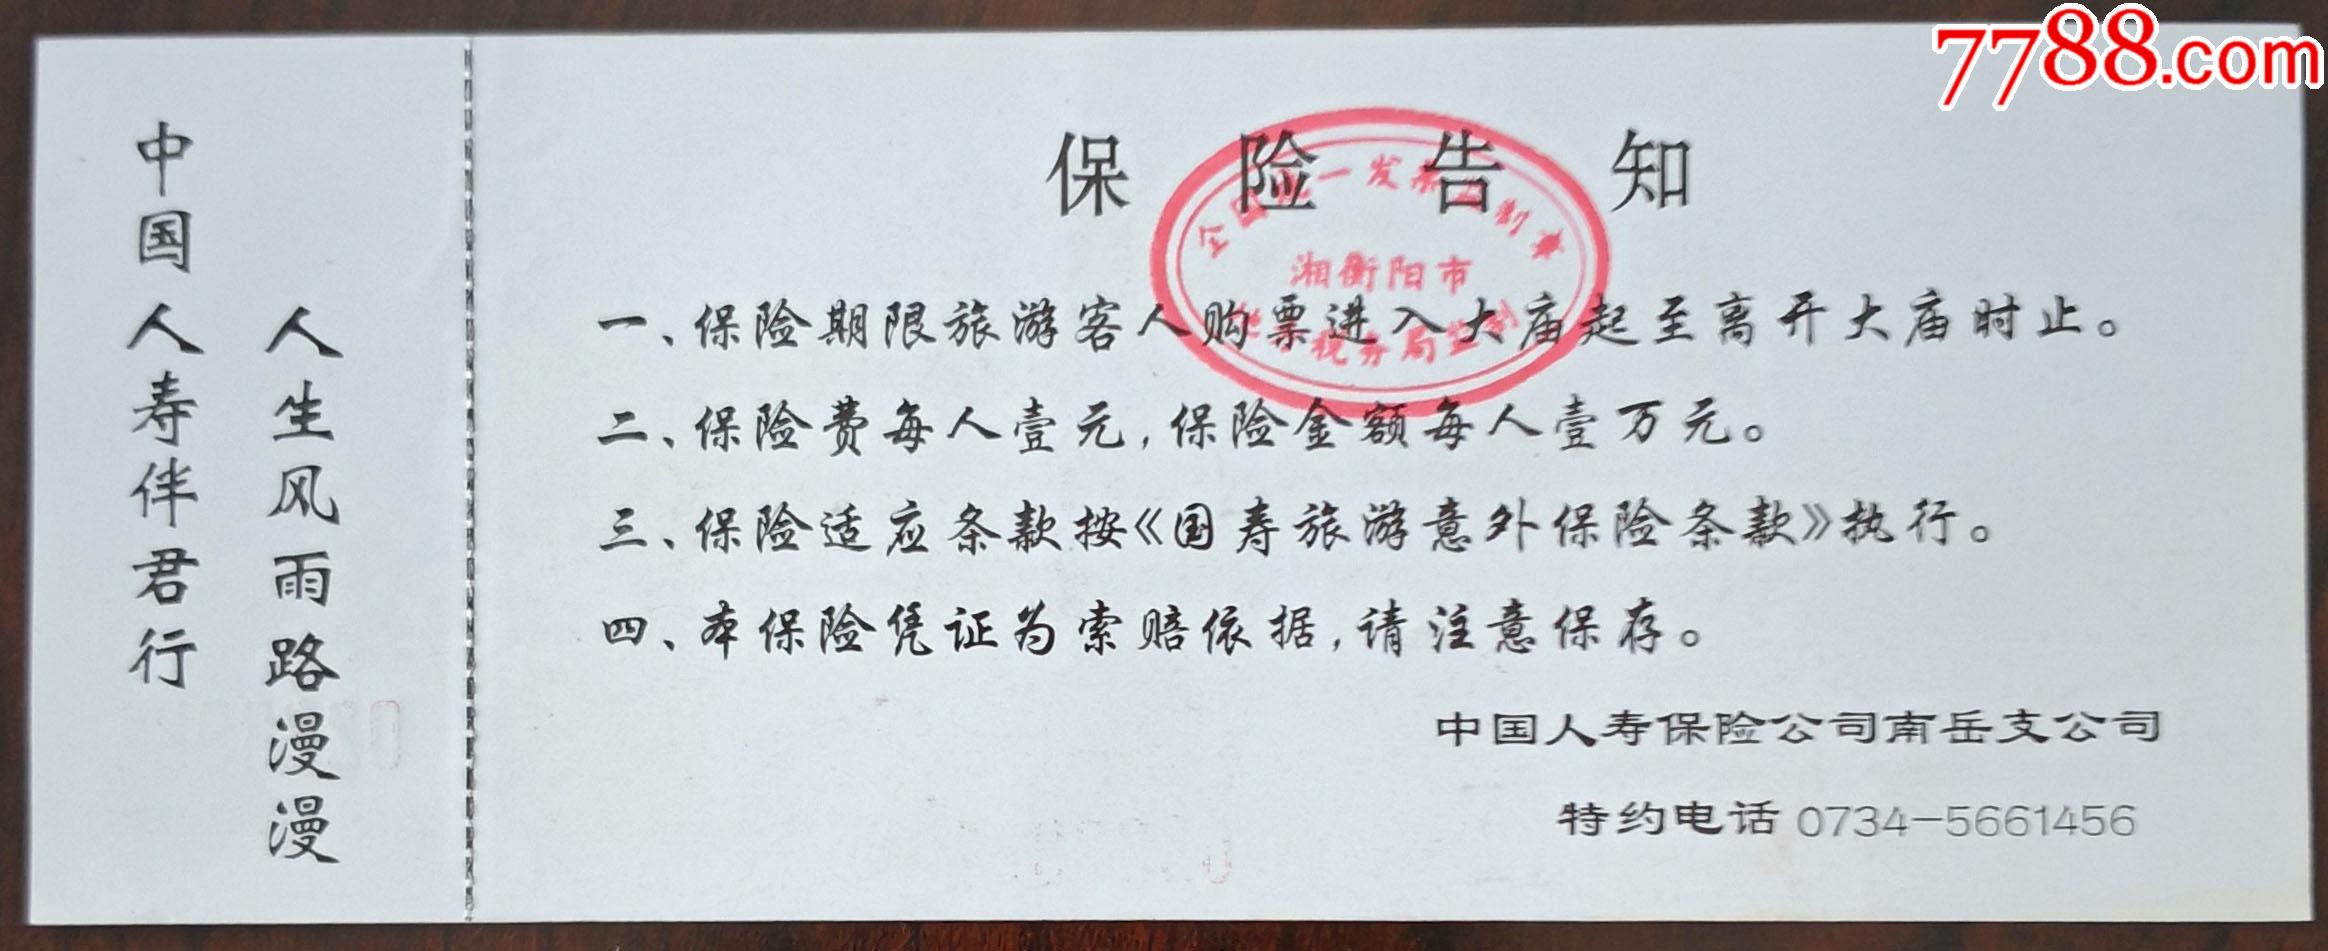 7788.com
人生风雨路漫漫
中国人寿伴君行
保险告知
全国统一发票监制章
湘衡阳市
税务局监制
一、保险期限旅游客人购票进入大庙起至离开大庙时止。
二、保险费每人壹元,保险金额每人壹万元。
三、保险适应条款按《国寿旅游意外保险条款》执行。
四、本保险凭证为索赔依据,请注意保存。
中国人寿保险公司南岳支公司
特约电话 0734-5661456